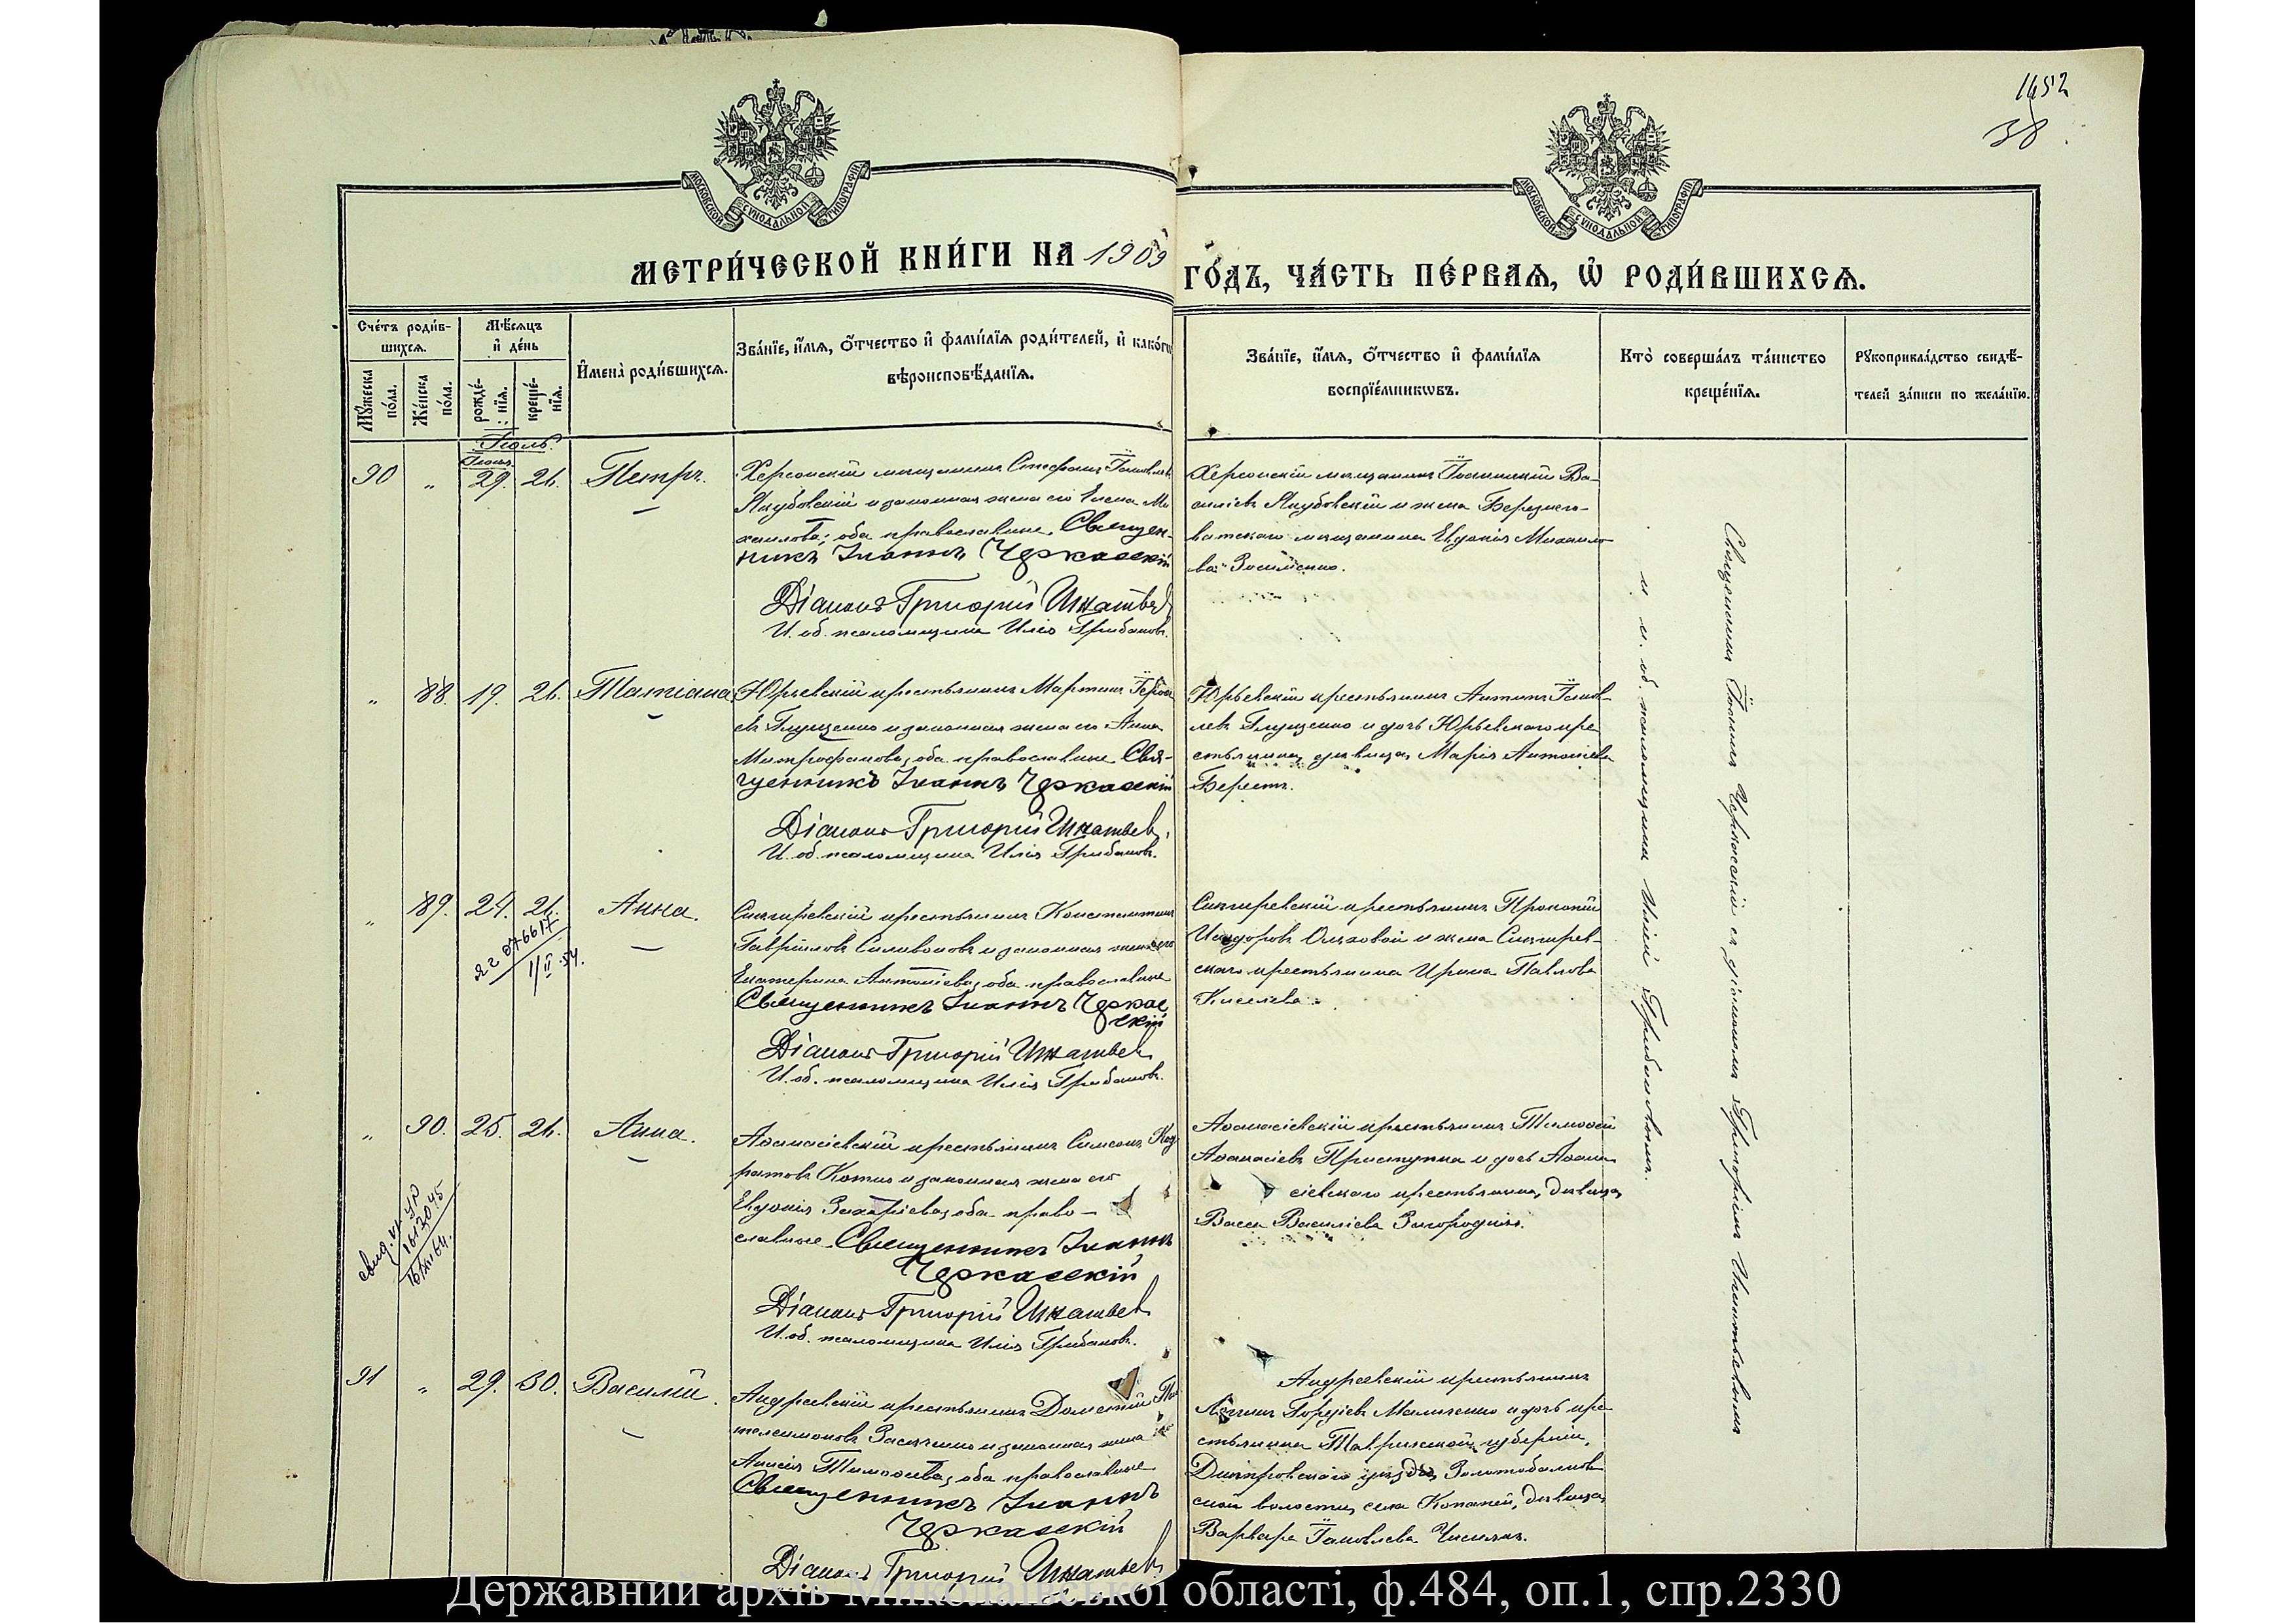 1652
38
МОСКОВСКОЙ СУНОДАЛЬНОЙ ТИПОГРАФІИ
МОСКОВСКОЙ СУНОДАЛЬНОЙ ТИПОГРАФІИ
МЕТРИ́ЧЕСКОЙ КНИ́ГИ НА 1909
ГО́ДЪ, ЧА́СТЬ ПЕ́РВАѦ, Ѡ҆ РОДИ́ВШИХСѦ.
Сче́тъ роди́в-
шихсѧ.
Мѣ́сѧцъ
и҆ де́нь
Мꙋжеска по́ла.
Же́нска по́ла.
рожде́-нїѧ.
креще́-нїѧ.
И҆мена̀ роди́вшихсѧ.
Зва́нїе, и҆́мѧ, ѻ҆́тчество и҆ фами́лїѧ роди́телей, и҆ како́гѡ
вѣроисповѣ́данїѧ.
Зва́нїе, и҆́мѧ, ѻ҆́тчество и҆ фами́лїѧ
воспрїе́мникѡвъ.
Кто̀ соверша́лъ та́инство
креще́нїѧ.
Рꙋкоприкла́дство свидѣ́-
телей за́писи по жела́нїю.
Іюль
Іюнь
90 „ 29. 26. Петръ.
Херсонскій мѣщанинъ Стефанъ Іаковлевъ
Якубовскій и законная жена его Елена Ми
хаилова, оба православные. Священ-
никъ Іоаннъ Черкасскій
Діаконъ Григорій Игнатьевъ
И. об. псаломщика Илія Грибановъ.
Херсонскій мѣщанинъ Іоанникій Ва-
силіевъ Якубовскій и жена Березнего-
ватскаго мѣщанина Евдокія Михаило-
ва
„ 88. 19. 26. Татіана
Юрьевскій крестьянинъ Мартинъ
евъ Глущенко и законная жена его Анна
Митрофанова, оба православные Свя-
щенникъ Іоаннъ Черкасскій
Діаконъ Григорій Игнатьевъ
И. об. псаломщика Илія Грибановъ.
Юрьевскій крестьянинъ Антипъ Іаков-
левъ Глущенко и дочь Юрьевскаго кре
стьянина, дѣвица Марія Антоніева
Берестъ.
„ 89. 24. 26. Анна.
1/II 54.
Снигиревскій крестьянинъ Константинъ
Гавріиловъ Силивоновъ и законная жена его
Екатерина Антоніева, оба православные
Священникъ Іоаннъ Черкас
скій
Діаконъ Григорій Игнатьевъ
И. об. псаломщика Илія Грибановъ.
Снигиревскій крестьянинъ Прокопій
Исидоровъ Ольховой и жена Снигирев-
скаго крестьянина Ирина Павлова
Киселева.
„ 90. 25. 26. Анна.
Аѳанасіевскій крестьянинъ Симеонъ Код
ратовъ Котко и законная жена его
Евдокія Захаріева, оба право-
славные. Священникъ Іоаннъ
Черкасскій
Діаконъ Григорій Игнатьевъ
И. об. псаломщика Илія Грибановъ.
Аѳанасіевскій крестьянинъ Тимоѳей
Аѳанасіевъ Приступка и дочь Аѳана
сіевскаго крестьянина, дѣвица
Васса Василіева Загородняя.
91 „ 29. 30. Василій.
Андреевскій крестьянинъ Дометій Пан
телеимоновъ Засяченко и законная жена
Анисія Тимоѳеева, оба православные
Священникъ Іоаннъ
Черкасскій
Діаконъ Григорій Игнатьевъ
Андреевскій крестьянинъ
Логинъ Гордіевъ Мельченко и дочь кре
стьянина Таврической губерніи,
Днѣпровскаго уѣзда, Золотобалков
ской волости, села Копаней, дѣвица
Варвара Іаковлева
Священникъ Іоаннъ Черкасскій съ діакономъ Григоріемъ Игнатьевымъ
и и. об. псаломщика Иліей Грибановымъ.
Державний архів Миколаївської області, ф.484, оп.1, спр.2330